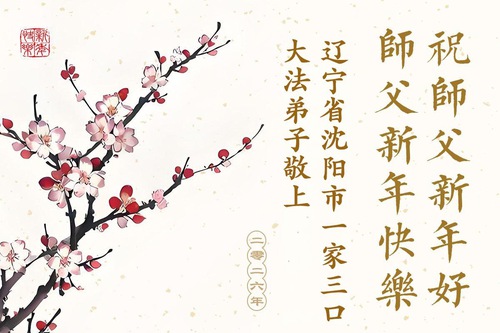 祝師父新年好
師父新年快樂
辽宁省沈阳市一家三口
大法弟子敬上
二零二六年
新年快樂